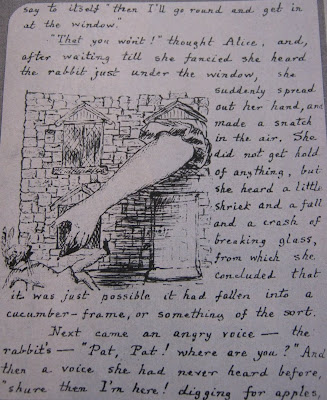 say to itself "then I'll go round and get in
at the window."
"That you wont!" thought Alice, and,
after waiting till she fancied she heard
the rabbit just under the window, she
suddenly spread
out her hand, and
made a snatch
in the air. She
did not get hold
of anything, but
she heard a little
shriek and a fall
and a crash of
breaking glass,
from which she
concluded that
it was just possible it had fallen into a
cucumber-frame, or something of the sort.
Next came an angry voice — the
rabbit's — "Pat, Pat! where are you?" And
then a voice she had never heard before,
"shure then I'm here! digging for apples,